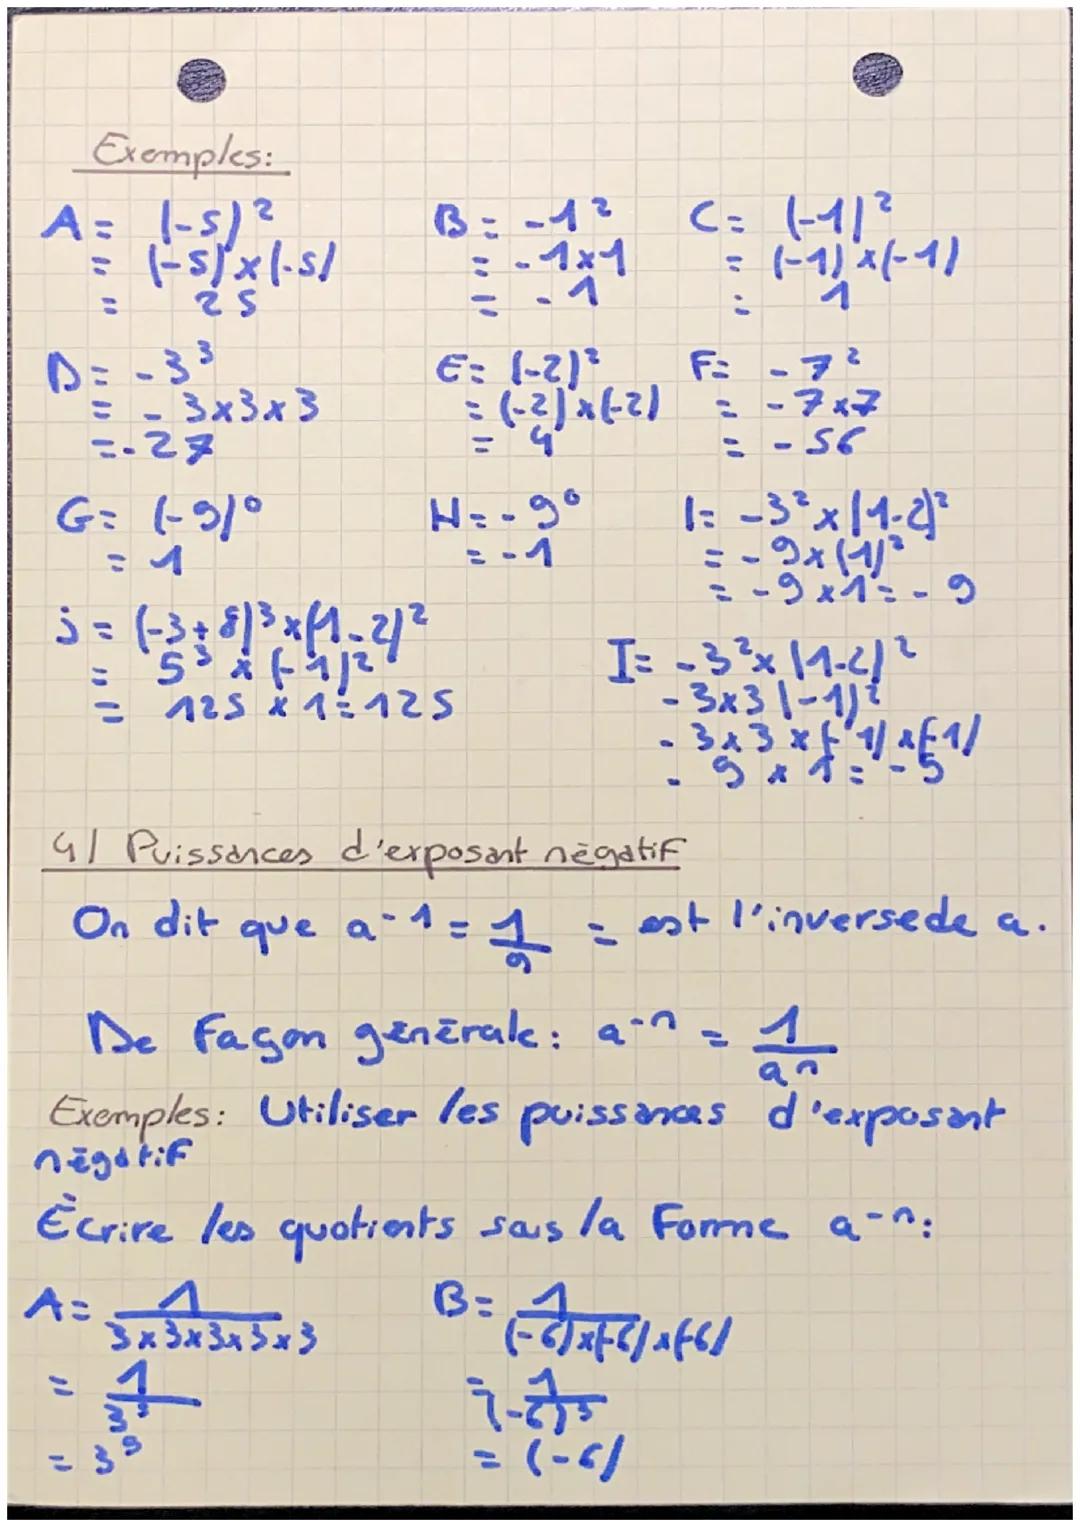 Exemples:
A = (-5)² B = -1² C = (-1)²
= (-5) x (-5) = -1x1 = (-1) x (-1)
= 25 = -1 = 1
D = -3³ E = (-2)² F = -7²
= - 3x3x3 = (-2) x (-2) = -7x7
= -27 = 4 = -56
G = (-9)⁰ H = -9⁰ I = -3² x (1-2)²
= 1 = -1 = -9 x (1)²
= -9 x 1 = -9
j = (-3+8)³ x (1-2)²
= 5³ x (-1)²
= 125 x 1 = 125
I = -3² x (1-2)²
- 3x3 (-1)²
- 3x3 x (-1) x (-1)
- 9 x 1 = -9
4/ Puissances d'exposant négatif
On dit que a⁻¹ = 1/a = est l'inverse de a.
De Façon générale: a⁻ⁿ = 1/aⁿ
Exemples: Utiliser les puissances d'exposant
négatif
Écrire les quotients sous la Forme a⁻ⁿ:
A = 1/(3x3x3x3x3) B = 1/((-6)x(-6)x(-6))